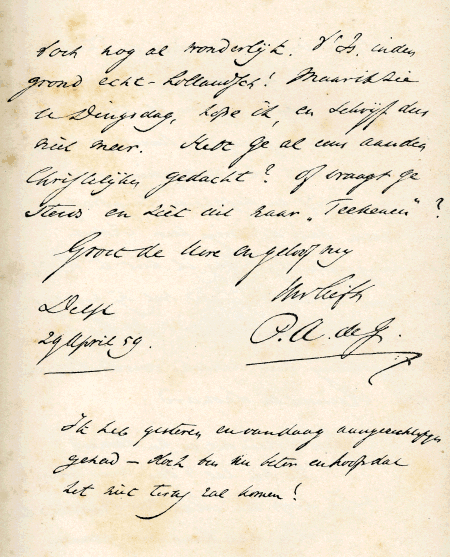 toch nog al wonderlijk. 't Is in den
grond echt-Hollandsch! Maar ik zie
u Dingsdag, hope ik, en schrijf dus
niet meer. Hebt ge al eens aan den
Christelijken gedacht? of vraagt ge
steeds en ziet uit naar „Teekenen"?
Groet de Uwe en geloof mij
Uw liefh
P. A. de G.
Delft
29 April 59.
Ik heb gisteren en vandaag
gehad — doch ben nu beter en hoop dat
het niet terug zal komen!